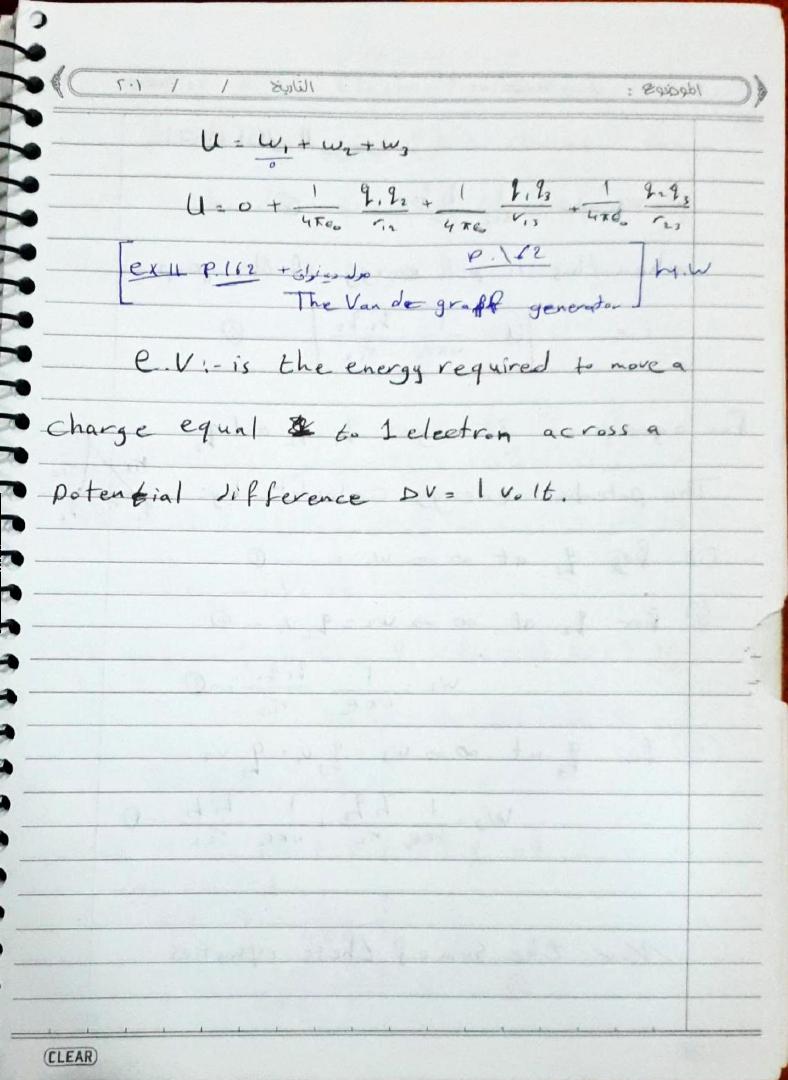 الموضوع : التاريخ / / ٢٠١
U = W₁ + W₂ + W₃
0
U = 0 + 1/4πε₀ q₁q₂/r₁₂ + 1/4πε₀ q₁q₃/r₁₃ + 1/4πε₀ q₂q₃/r₂₃
[ex 11 P.162 + P.162
The Van de graff generator] H.W
e.V :- is the energy required to move a
charge equal to 1 electron across a
Potential difference ΔV = 1 volt.
CLEAR